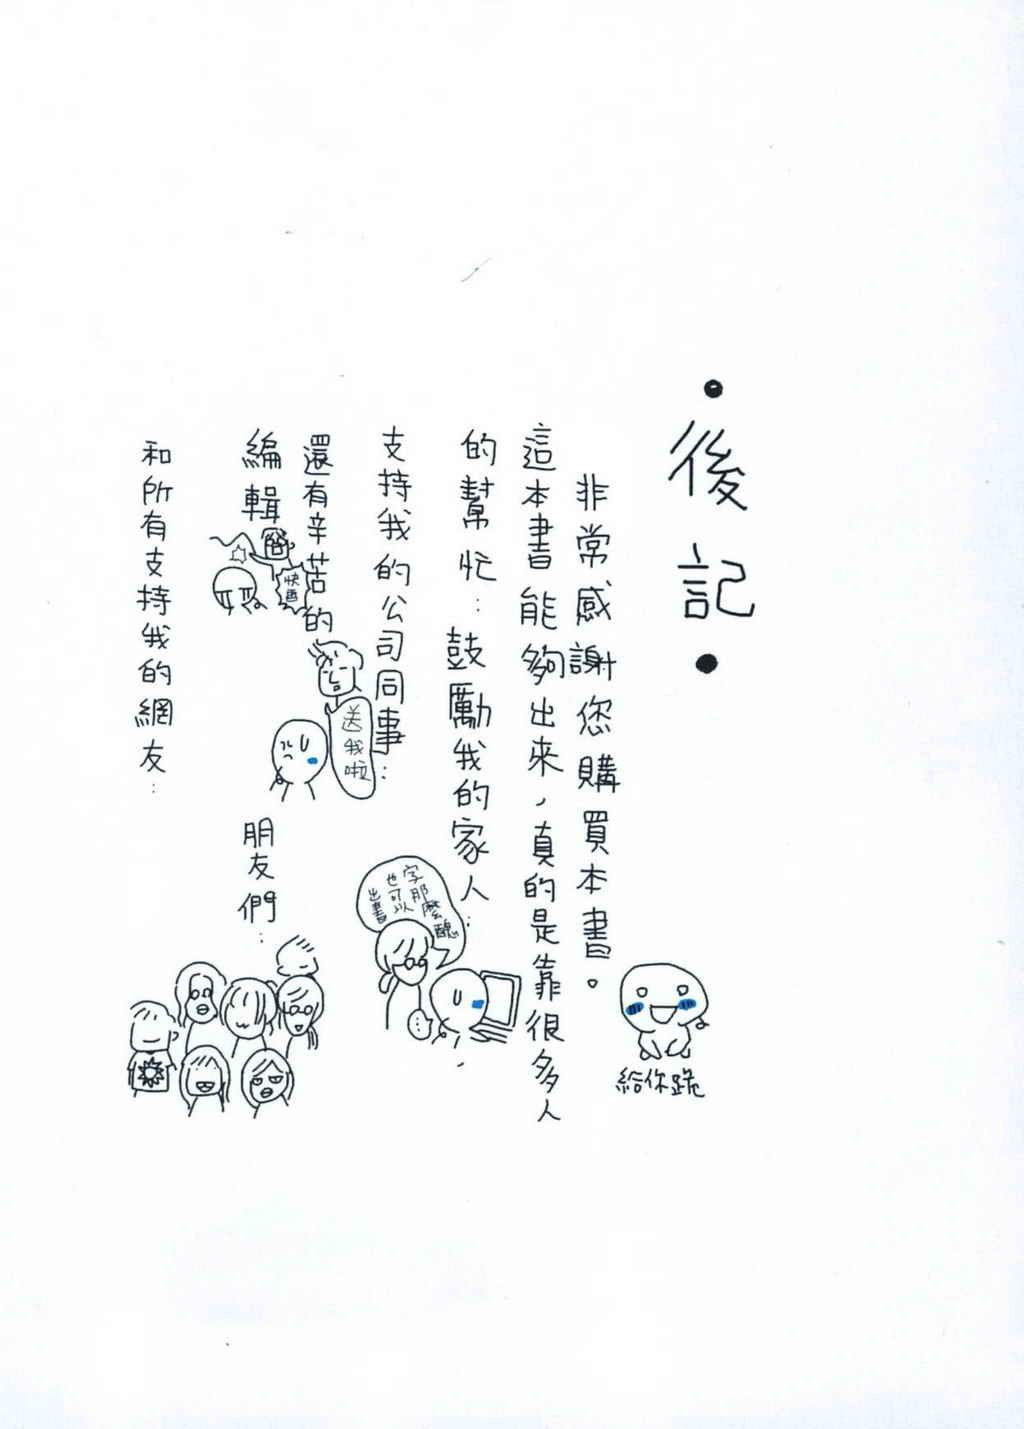 •後記•
非常感謝您購買本書。
給你跪
這本書能夠出來,真的是靠很多人
的幫忙…鼓勵我的家人…
字那麼醜
也可以
出書
…
支持我的公司同事…
送我啦
還有辛苦的
編輯
快畫
朋友們…
和所有支持我的網友…